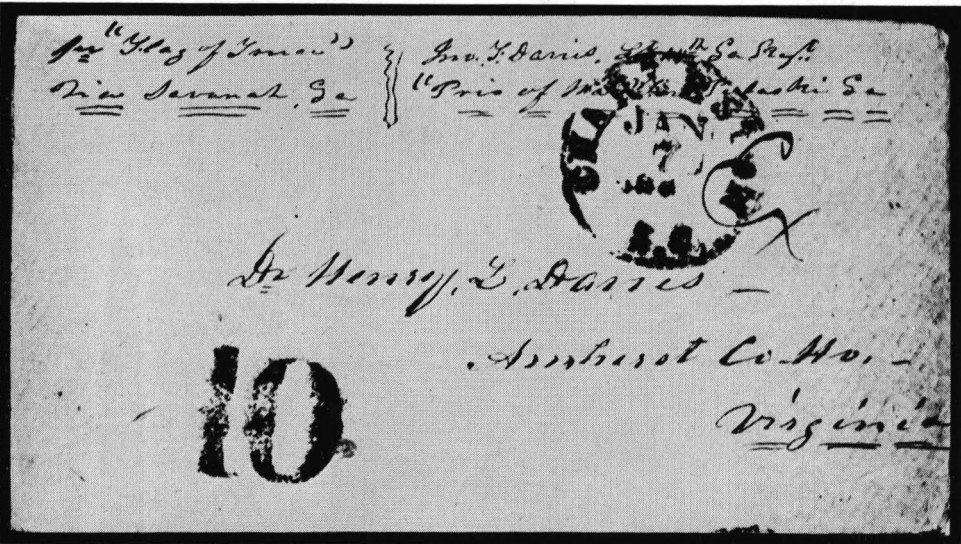 per "Flag of Truce"
Via Savanah, Ga
Jno. F. Davies, Ga
"Pris of Pulaski Ga
CHA
JAN
7
Dr Henry, L, Davies
Amherst Co. Ho.
Virginia
10